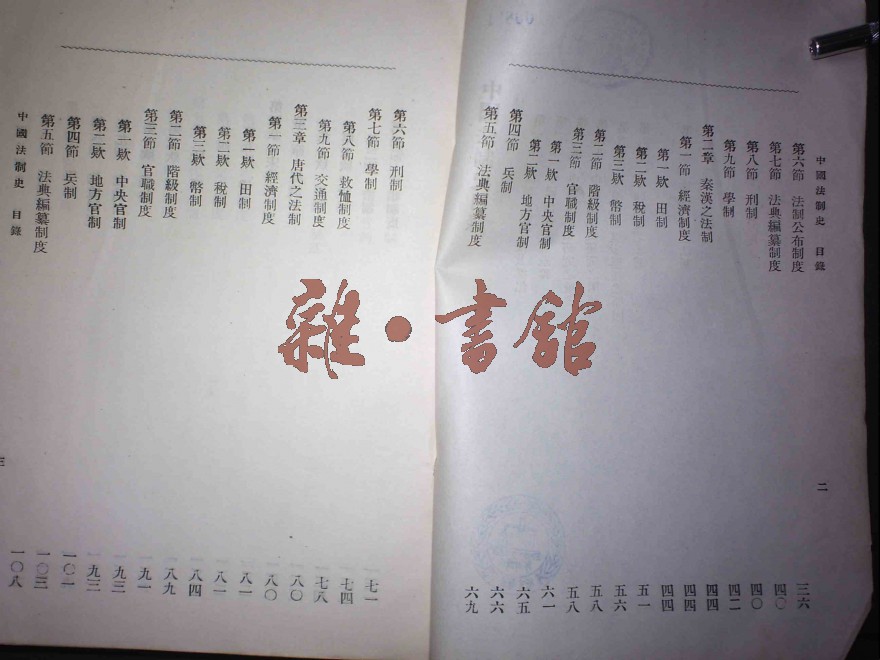 中國法制史 目錄 二
第六節 法制公布制度 三六
第七節 法典編纂制度 四〇
第八節 刑制 四〇
第九節 學制 四二
第二章 秦漢之法制 四四
第一節 經濟制度 四四
第一欵 田制 四四
第二欵 稅制 五一
第三欵 幣制 五六
第二節 階級制度 五八
第三節 官職制度 五八
第一欵 中央官制 六一
第二欵 地方官制 六五
第四節 兵制 六六
第五節 法典編纂制度 六九
第六節 刑制 七一
第七節 學制 七四
第八節 救恤制度 七八
第九節 交通制度 八〇
第三章 唐代之法制 八〇
第一節 經濟制度 八一
第一欵 田制 八一
第二欵 稅制 八四
第三欵 幣制 八九
第二節 階級制度 九一
第三節 官職制度 九三
第一欵 中央官制 九三
第二欵 地方官制 一〇一
第四節 兵制 一〇三
第五節 法典編纂制度 一〇八
中國法制史 目錄 三
雜·書館